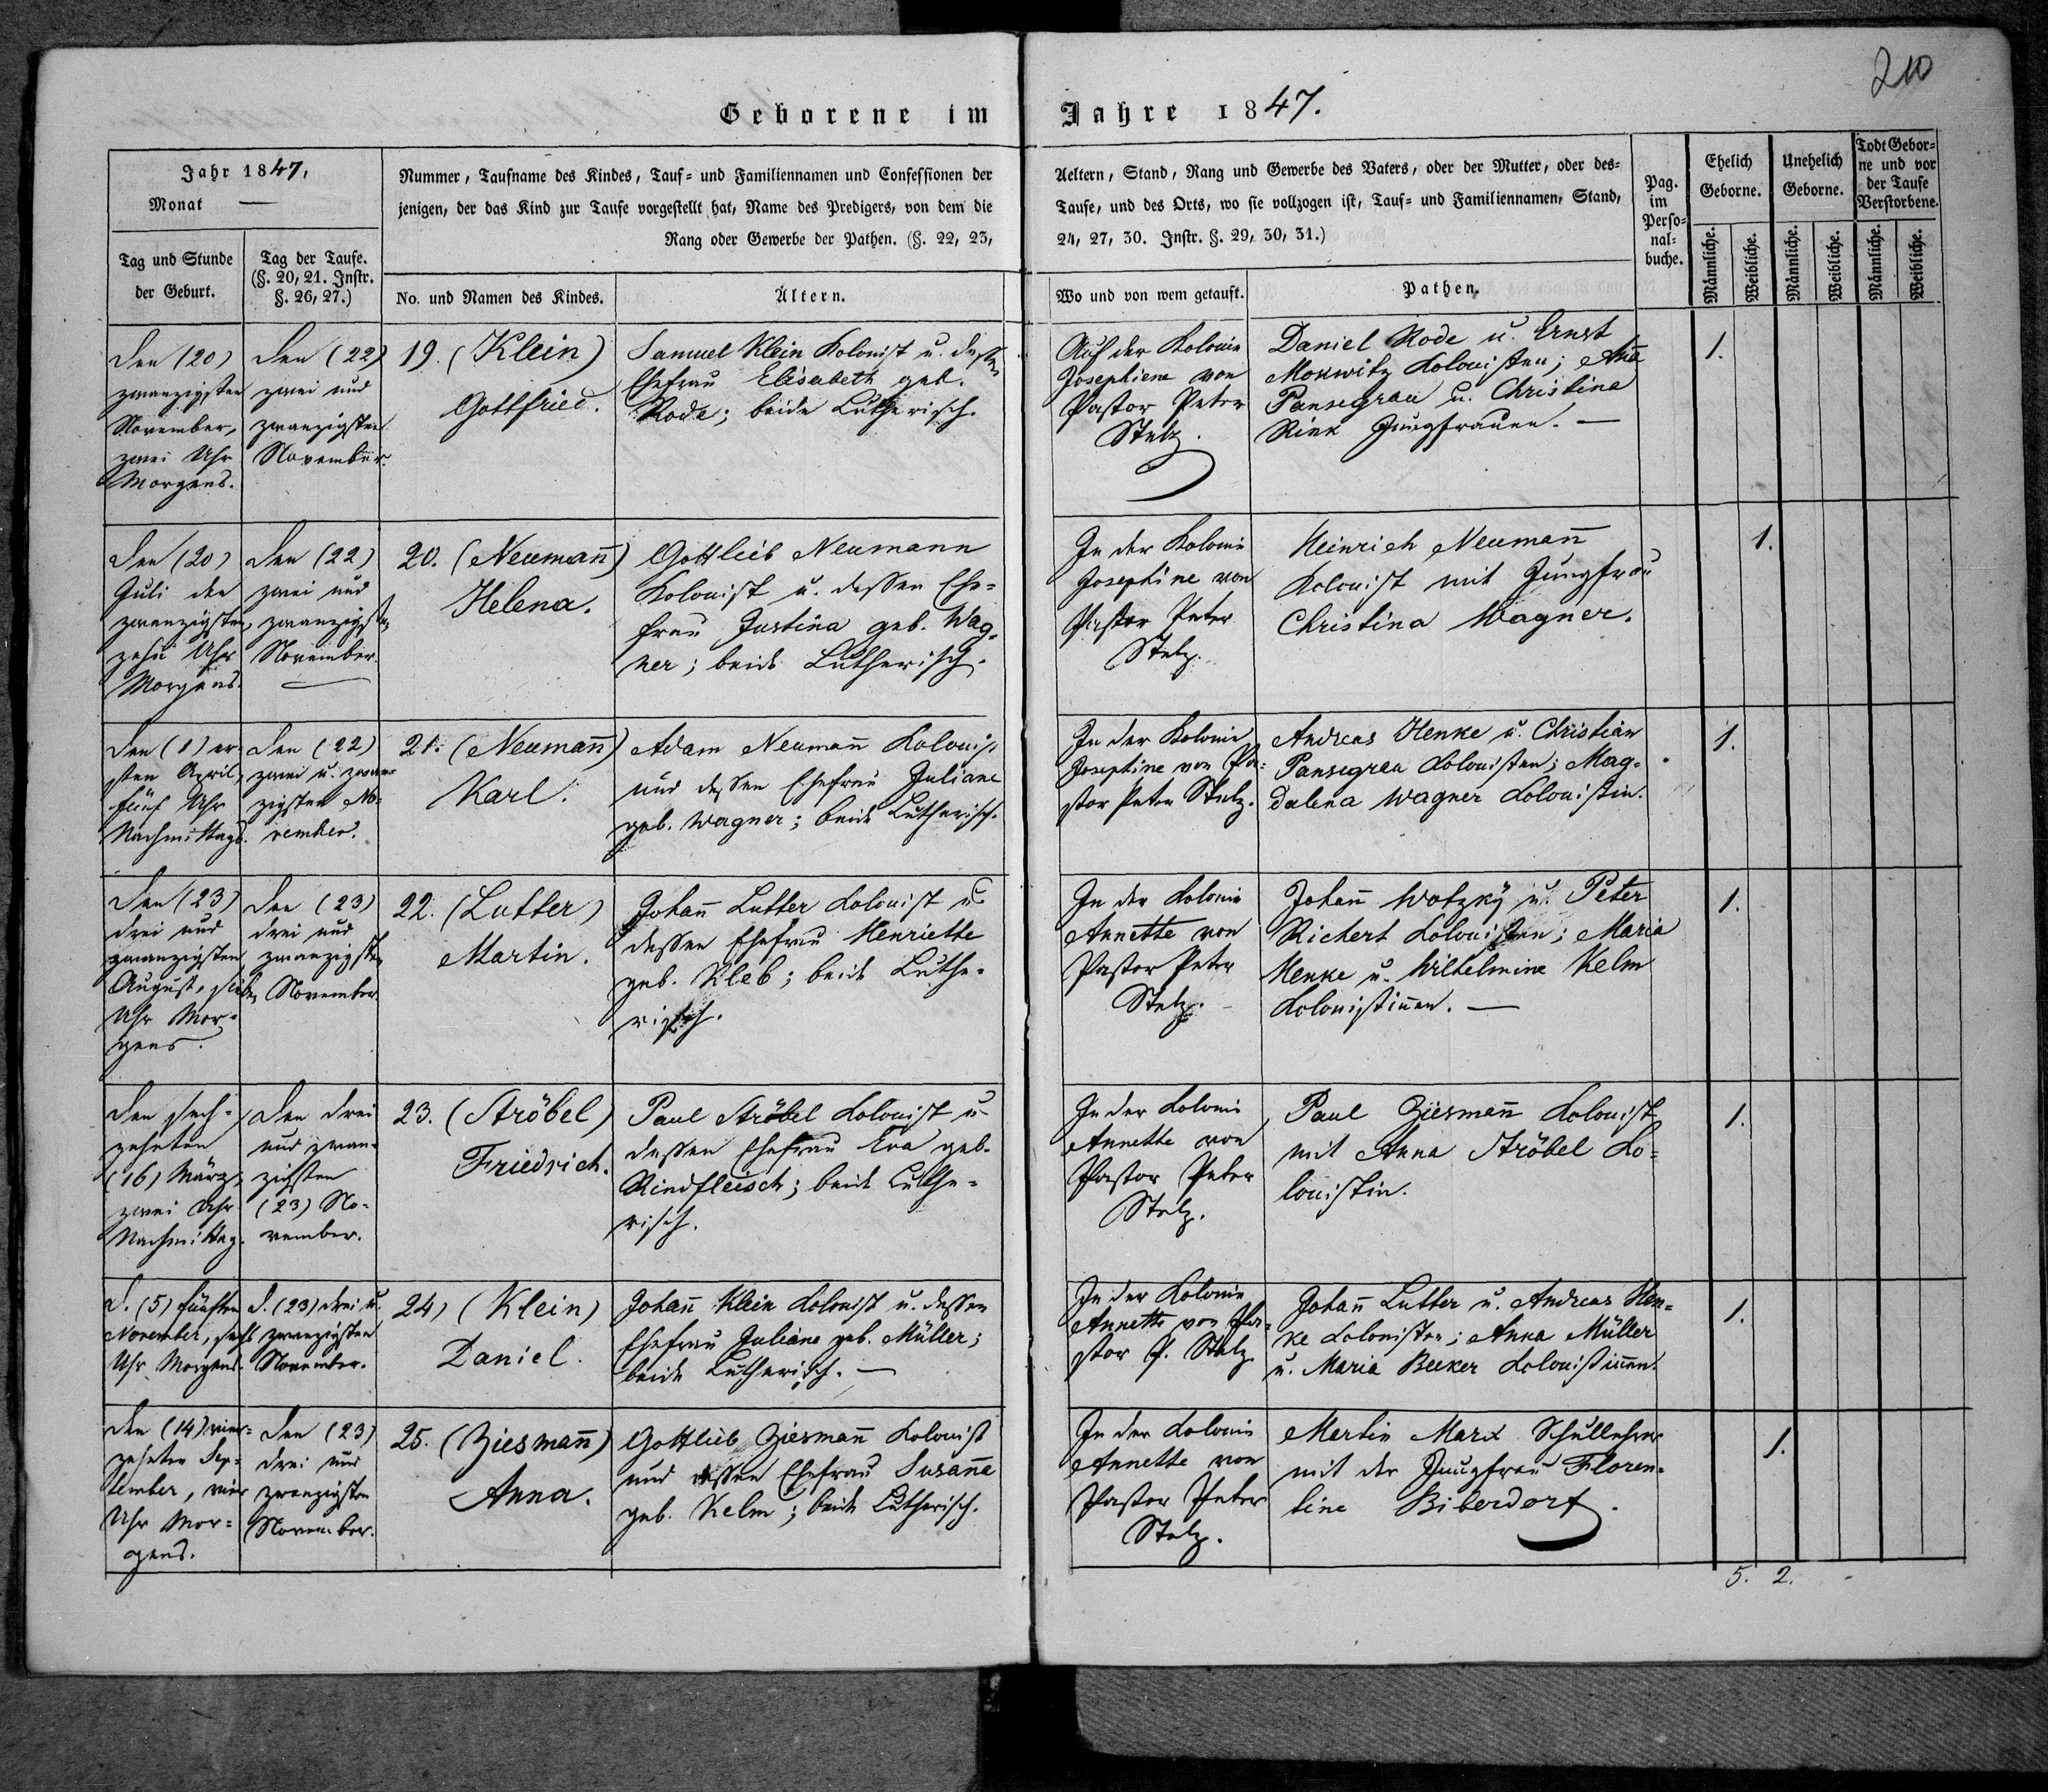 210
Geborene im Jahre 1847.
Jahr 1847,
Monat —
Tag und Stunde
der Geburt.
Tag der Taufe.
(§. 20, 21. Instr.
§. 26, 27.)
Nummer, Taufname des Kindes, Tauf- und Familiennamen und Confessionen der
jenigen, der das Kind zur Taufe vorgestellt hat, Name des Predigers, von dem die
Rang oder Gewerbe der Pathen. (§. 22, 23,
No. und Namen des Kindes.
Ältern.
Aeltern, Stand, Rang und Gewerbe des Vaters, oder der Mutter, oder des-
Taufe, und des Orts, wo sie vollzogen ist, Tauf- und Familiennamen, Stand,
24, 27, 30. Instr. §. 29, 30, 31.)
Wo und von wem getauft.
Pathen.
Pag.
im
Perso-
nal-
buche.
Ehelich
Geborne.
Unehelich
Geborne.
Todt Gebor-
ne und vor
der Taufe
Verstorbene.
Männliche.
Weibliche.
Männliche.
Weibliche.
Männliche.
Weibliche.
Den (20)
zwanzigsten
November,
zwei Uhr
Morgens.
Den (22)
zwei und
zwanzigsten
November.
19. (Klein)
Gottfried.
Samuel Klein Kolonist u. dessen
Ehefrau Elisabeth geb.
Rode; beide Lutherisch.
Auf der Kolonie
Josephiene von
Pastor Peter
Stelz.
Daniel Rode u. Ernst
Mokwitz Kolonisten; Anna
Pansegrau u. Christine
Rink Jungfrauen. —
1.
Den (20)
Juli den
zwanzigsten,
zehn Uhr
Morgens.
Den (22)
zwei und
zwanzigsten
November.
20. (Neumañ)
Helena.
Gottlieb Neumann
Kolonist u. dessen Ehe-
frau Justina geb. Wag-
ner; beide Lutherisch.
In der Kolonie
Josephine von
Pastor Peter
Stelz.
Heinrich Neumañ
Kolonist mit Jungfrau
Christina Wagner.
1.
Den (1) er-
sten April,
fünf Uhr
Nachmittags.
Den (22)
zwei u. zwan-
zigsten No-
vember.
21. (Neumañ)
Karl.
Adam Neumañ Kolonist
und dessen Ehefrau Juliane
geb. Wagner; beide Lutherisch.
In der Kolonie
Josephine von Pa-
stor Peter Stelz.
Andreas Henke u. Christian
Pansegrau Kolonisten; Mag-
dalena Wagner Kolonistin.
1.
Den (23)
drei und
zwanzigsten
August, sieben
Uhr Mor-
gens.
Den (23)
drei und
zwanzigsten
November
22. (Lutter)
Martin.
Johañ Lutter Kolonist u.
dessen Ehefrau Henriette
geb. Kleb; beide Luthe-
risch.
In der Kolonie
Annette von
Pastor Peter
Stelz.
Johañ Wotzky u. Peter
Richert Kolonisten; Maria
Henke u. Wilhelmine Kelm
Kolonistiñen. —
1.
Den sech-
zehnten
(16) März,
zwei Uhr
Nachmittag.
Den drei
und zwan-
zigsten
(23) No-
vember.
23. (Ströbel)
Friedrich.
Paul Ströbel Kolonist u.
dessen Ehefrau Eva geb.
Rindfleisch; beide Luthe-
risch.
In der Kolonie
Annette von
Pastor Peter
Stelz.
Paul Ziesmañ Kolonist
mit Anna Ströbel Ko-
lonistin.
1.
D. (5) fünften
November, sechs
Uhr Morgens.
D. (23) drei u.
zwanzigsten
November.
24, (Klein)
Daniel.
Johañ Klein Kolonist u. dessen
Ehefrau Juliane geb. Müller;
beide Lutherisch. —
In der Kolonie
Annette von Pa-
stor P. Stelz.
Johañ Lutter u. Andreas Hen-
ke Kolonisten; Anna Müller
u. Maria Beeker Kolonistiñen.
1.
Den (14) vier-
zehnten Sep-
tember, vier
Uhr Mor-
gens.
Den (23)
drei und
zwanzigsten
November.
25. (Ziesmañ)
Anna.
Gottlieb Ziesmañ Kolonist
und dessen Ehefrau Susaña
geb. Kelm; beide Lutherisch.
In der Kolonie
Annette von
Pastor Peter
Stelz.
Martin Marx Schullehrer
mit der Jungfrau Floren-
tine Biberdorf.
1.
5. 2.